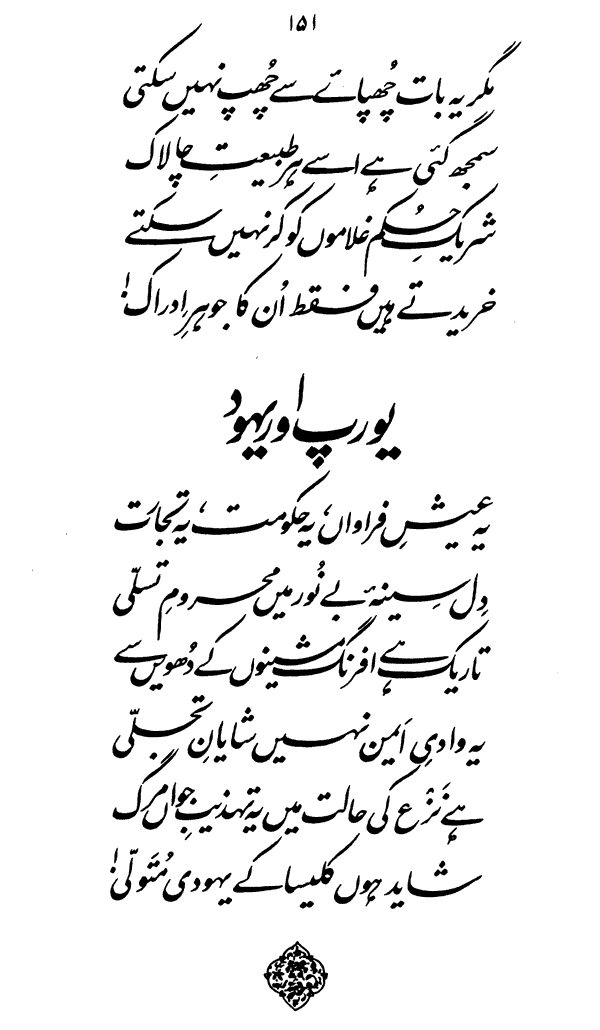 ۱۵۱
مگر یہ بات چُھپائے سے چُھپ نہیں سکتی
سمجھ گئی ہے اسے ہر طبیعتِ چالاک
شریکِ حُکم غلاموں کو کر نہیں سکتے
خریدتے ہیں فقط اُن کا جوہرِ ادراک!
یورپ اور یہود
یہ عیشِ فراواں، یہ حکومت، یہ تجارت
دِل سینۂ بے نُور میں محرومِ تسلّی
تاریک ہے افرنگ مشینوں کے دُھویں سے
یہ وادیِ اَیمن نہیں شایانِ تجلّی
ہے نَزْع کی حالت میں یہ تہذیبِ جواں مرگ
شاید ہوں کلیسا کے یہودی مُتَولّی!